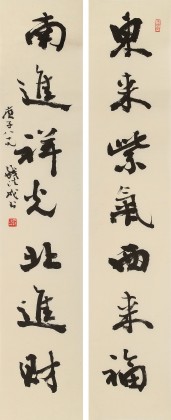 東来紫氣西来福
南進祥光北進財
庚子八十九